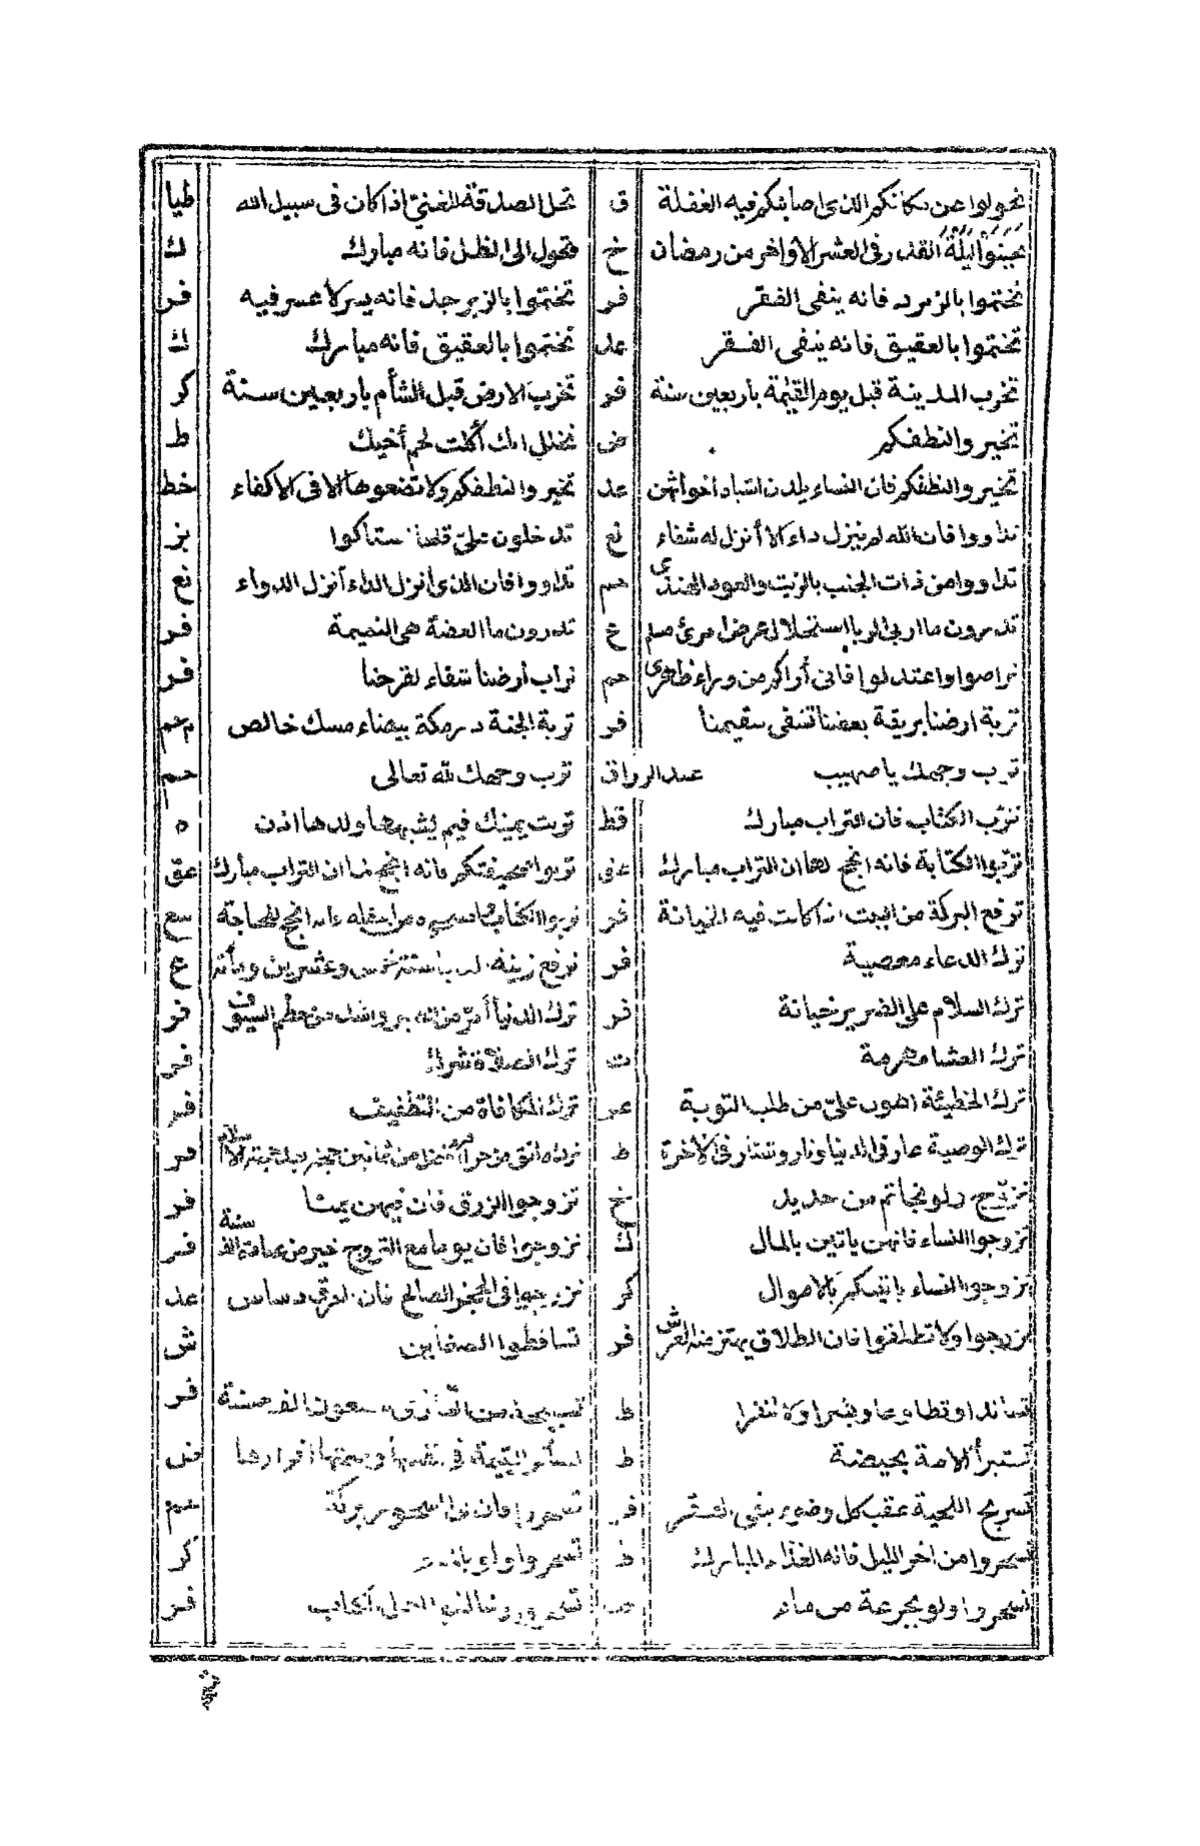 تحولوا عن مكانكم الذى اصابتكم فيه الغفلة ق تحل الصدقة للغنىّ اذا كان فى سبيل الله طيا
تحينوا ليلة القدر فى العشر الأواخر من رمضان خ تحول الى الظل فانه مبارك ك
تختموا بالزمرد فانه ينفى الفقر فر تختموا بالزبرجد فانه يسر لا عسر فيه فر
تختموا بالعقيق فانه ينفى الفقر عد تختموا بالعقيق فانه مبارك ك
تخرب المدينة قبل يوم القيٰمة باربعين سنة فر تخرب الارض قبل الشأم باربعين سنة كر
تخيروا لنطفكم ض تخلل انك أكلت لحم أخيك ط
تخيروا لنطفكم فان النساء يلدن اشباه اخواتهن عد تخيروا لنطفكم ولا تضعوها الا فى الاكفاء خط
تداووا فان الله لم ينزل داء الا أنزل له شفاء نع تدخلون علىّ قلحا استاكوا بز
تداووا من ذات الجنب بالزيت والعود الهندى حم تداووا فان الذى أنزل الداء أنزل الدواء نع
تدرون ما اربى الربا استحلال عرض امرئ مسلم ع تدرون ما العضة هى النميمة فر
تراصوا واعتدلوا فانى أراكم من وراء ظهرى حم تراب أرضنا شفاء لقرحنا فر
تربة ارضنا بريقة بعضنا تشفى سقيمنا فر تربة الجنة درمكة بيضاء مسك خالص حم
ترب وجهك يا صهيب عبد الرزاق ترب وجهك لله تعالى حم
تترّب الكتاب فان التراب مبارك قط تربت يمينك فبم يشبهها ولدها اذن ه
تربوا الكتابة فانه انجح لها ان التراب مبارك عق تربوا صحيفتكم فانه انجح لها ان التراب مبارك عق
ترفع البركة من البيت اذا كانت فيه الخيانة فر تربوا الكتاب انجح للحاجة
ترك الدعاء معصية فر ترفع زينة الدنيا سنة خمس وعشرين ومأة ع
ترك السلام على الضرير خيانة فر ترك الدنيا أمرّ من الصبر واشد من حطم السيوف فر
ترك العشا مهرمة ت ترك الصلاة شرك فر
ترك الخطيئة اهون علىّ من طلب التوبة ترك المكافاة من التطفيف فر
ترك الوصية عار فى الدنيا ونار وشنار فى الاخرة ط فر
تزوج ولو بخاتم من حديد خ تزوجوا الزرق فان فيهن يمنا فر
تزوجوا النساء فانهن ياتين بالمال ك تزوجوا فان يوما مع التزوج خير من عبادة الف سنة فر
تزوجوا النساء ياتينكم بالاموال كر تزوجوا فى الحجز الصالح فان العرق دساس عد
تزوجوا ولا تطلقوا فان الطلاق يهتز منه العرش فر تساقطوا الضغاين ش
تساندا وتطاوعا وبشرا ولا تنفرا ط فر
تستبرأ الامة بحيضة ط تستأمر اليتيمة فى نفسها وصمتها اقرارها ض
تسريح اللحية عقب كل وضوء ينفى الفقر فر تسحروا فان فى السحور بركة حم
تسحروا من اخر الليل فانه الغذاء المبارك ط تسحروا ولو بالماء كر
تسحروا ولو بجرعة من ماء تسحروا وخالفوا اهل الكتاب فر